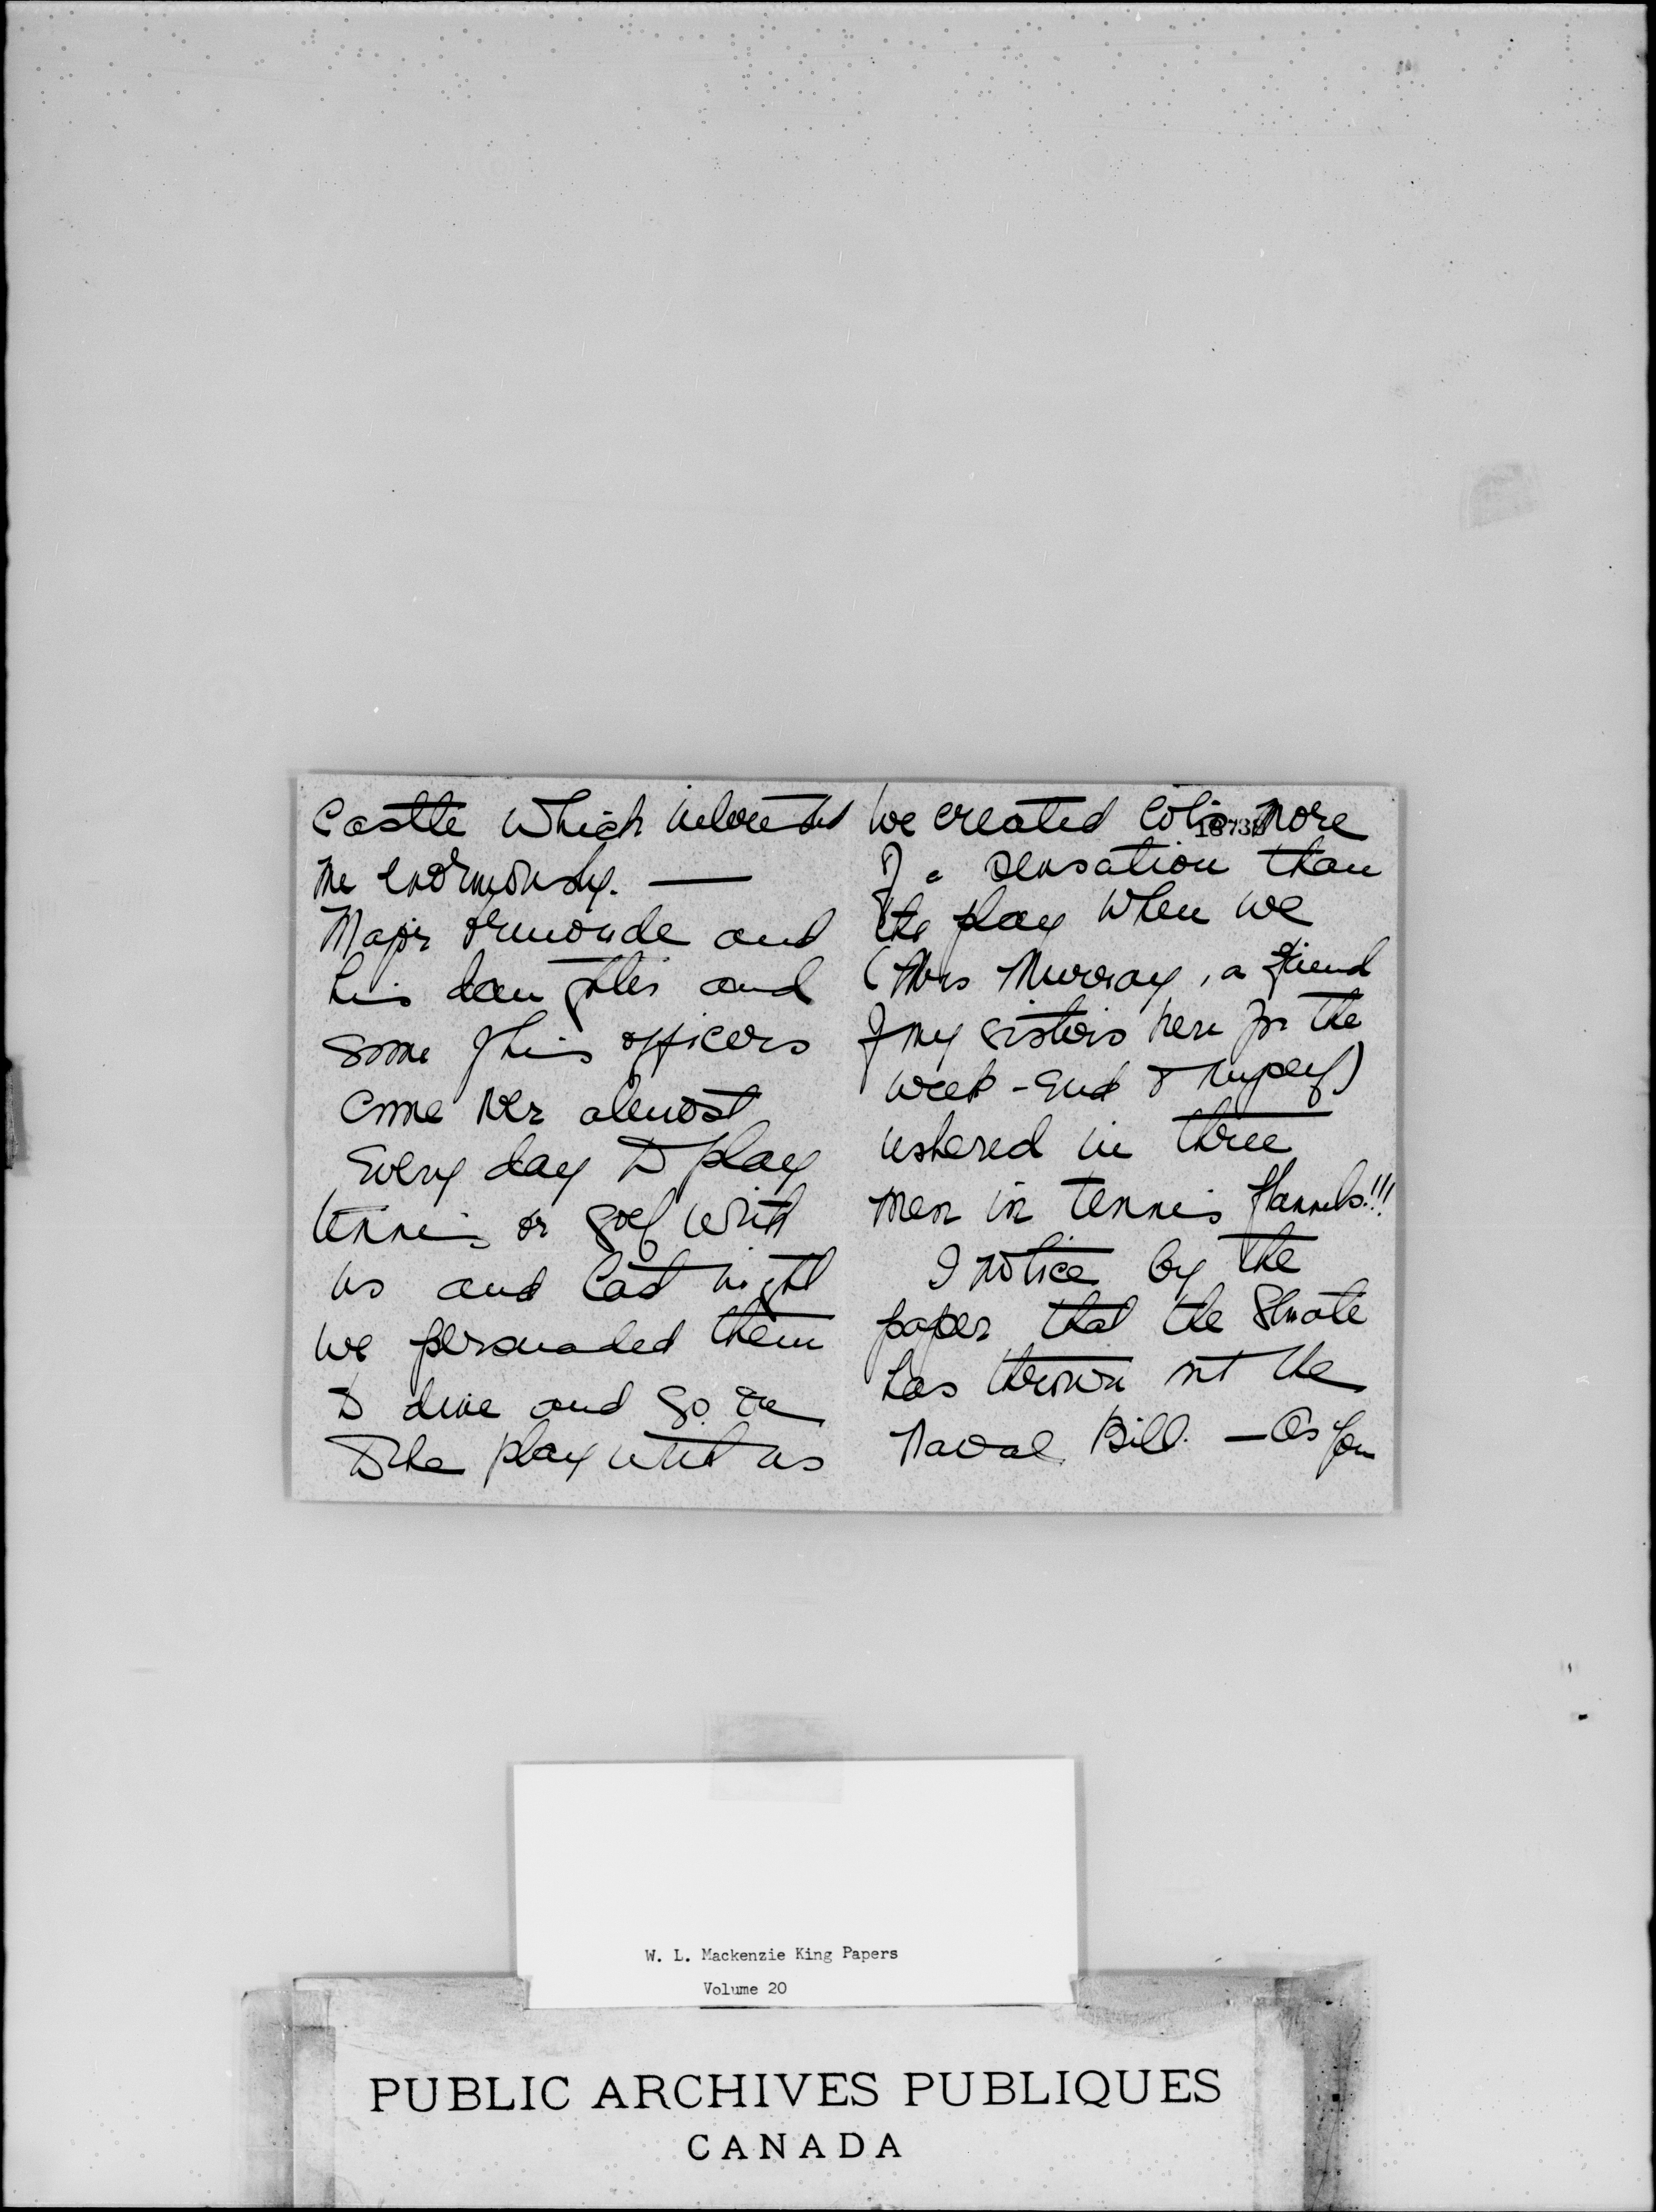 Castle which interested
me enormously. —
Major Ormonde and
his daughter and
some of his officers
come over almost
every day to play
tennis or golf with
us and last night
we persuaded them
to dine and go on
to the play with us
we created lots more
of a sensation than
the play when we
(Mrs Murray, a friend
of my sisters here for the
week-end & myself)
ushered in three
men in tennis flannels!!!
I notice by the
paper that the Senate
has thrown out the
Naval Bill. — As you
W. L. Mackenzie King Papers
Volume 20
PUBLIC ARCHIVES PUBLIQUES
CANADA